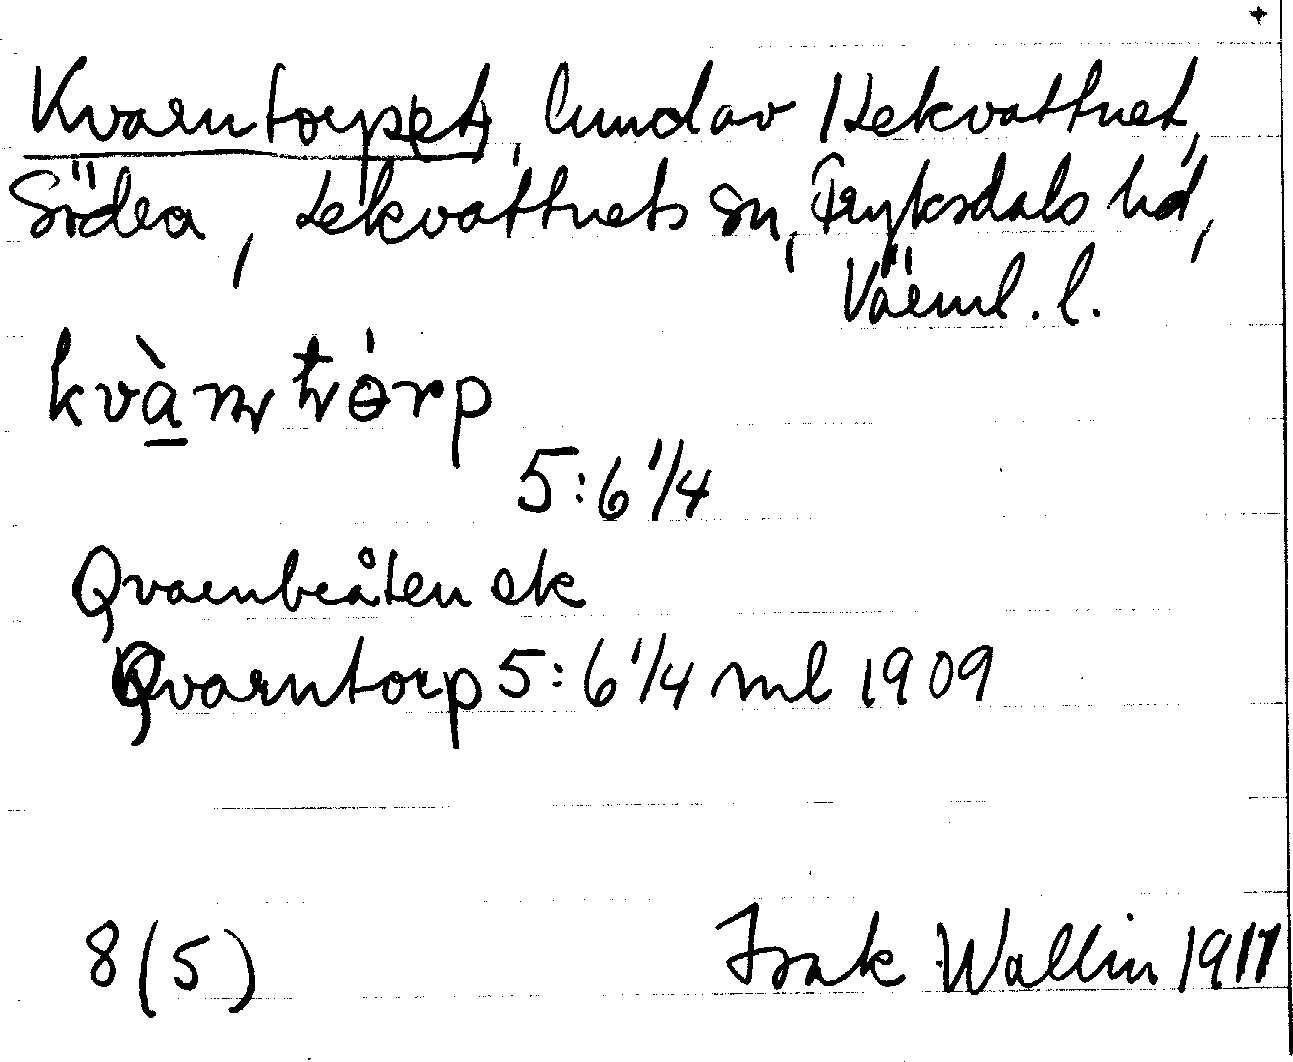 Kvarntorp(et), lund av 1 Lekvattnet,
Södra, Lekvattnets sn, Fryksdals hd,
Värml. l.
kvàrntǿrp
5:6 1/4
Qvarnbråten ek
Qvarntorp 5:6 1/4 ml 1909
8 (5) Isak Wallin 1917